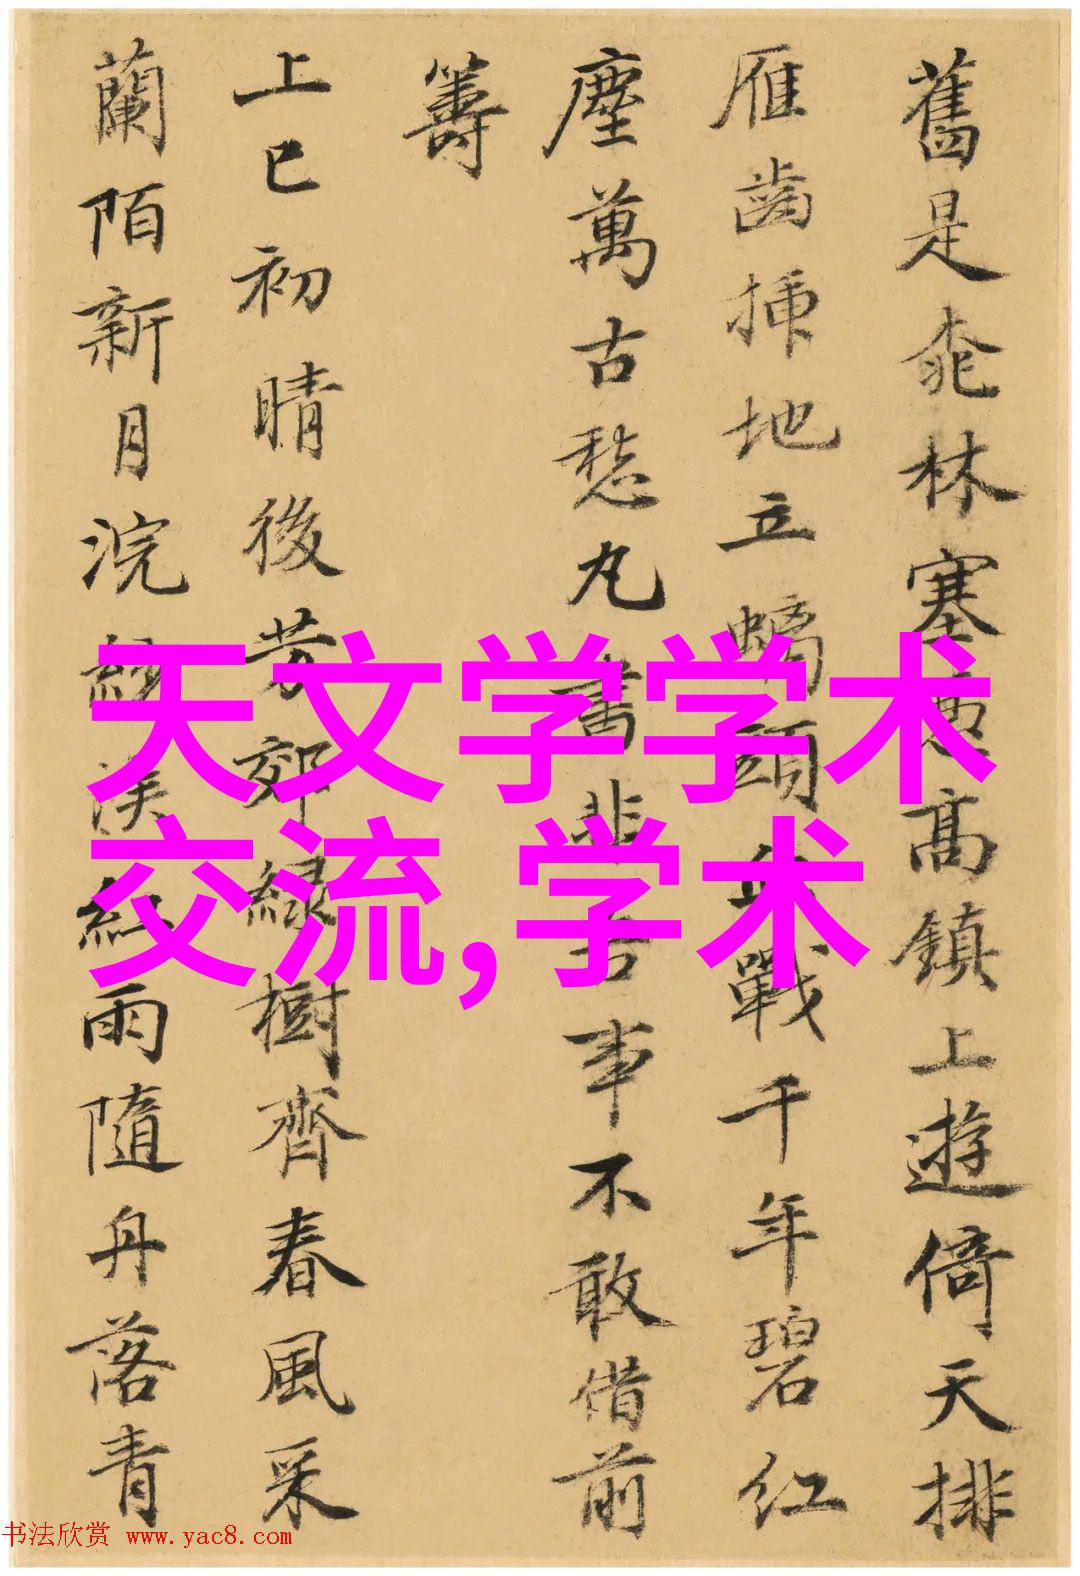 舊是桃林塞高鎮上遊倚天排
雁齒插地立螭頭血戰千年碧紅
塵萬古愁丸書非吾事不敢借前
籌
上巳初晴後芳郊綠樹齊春風采
蘭陌新月浣紗溪紅雨隨舟落青
天文学学术
交流,学术
书法欣赏 www.yac8.com